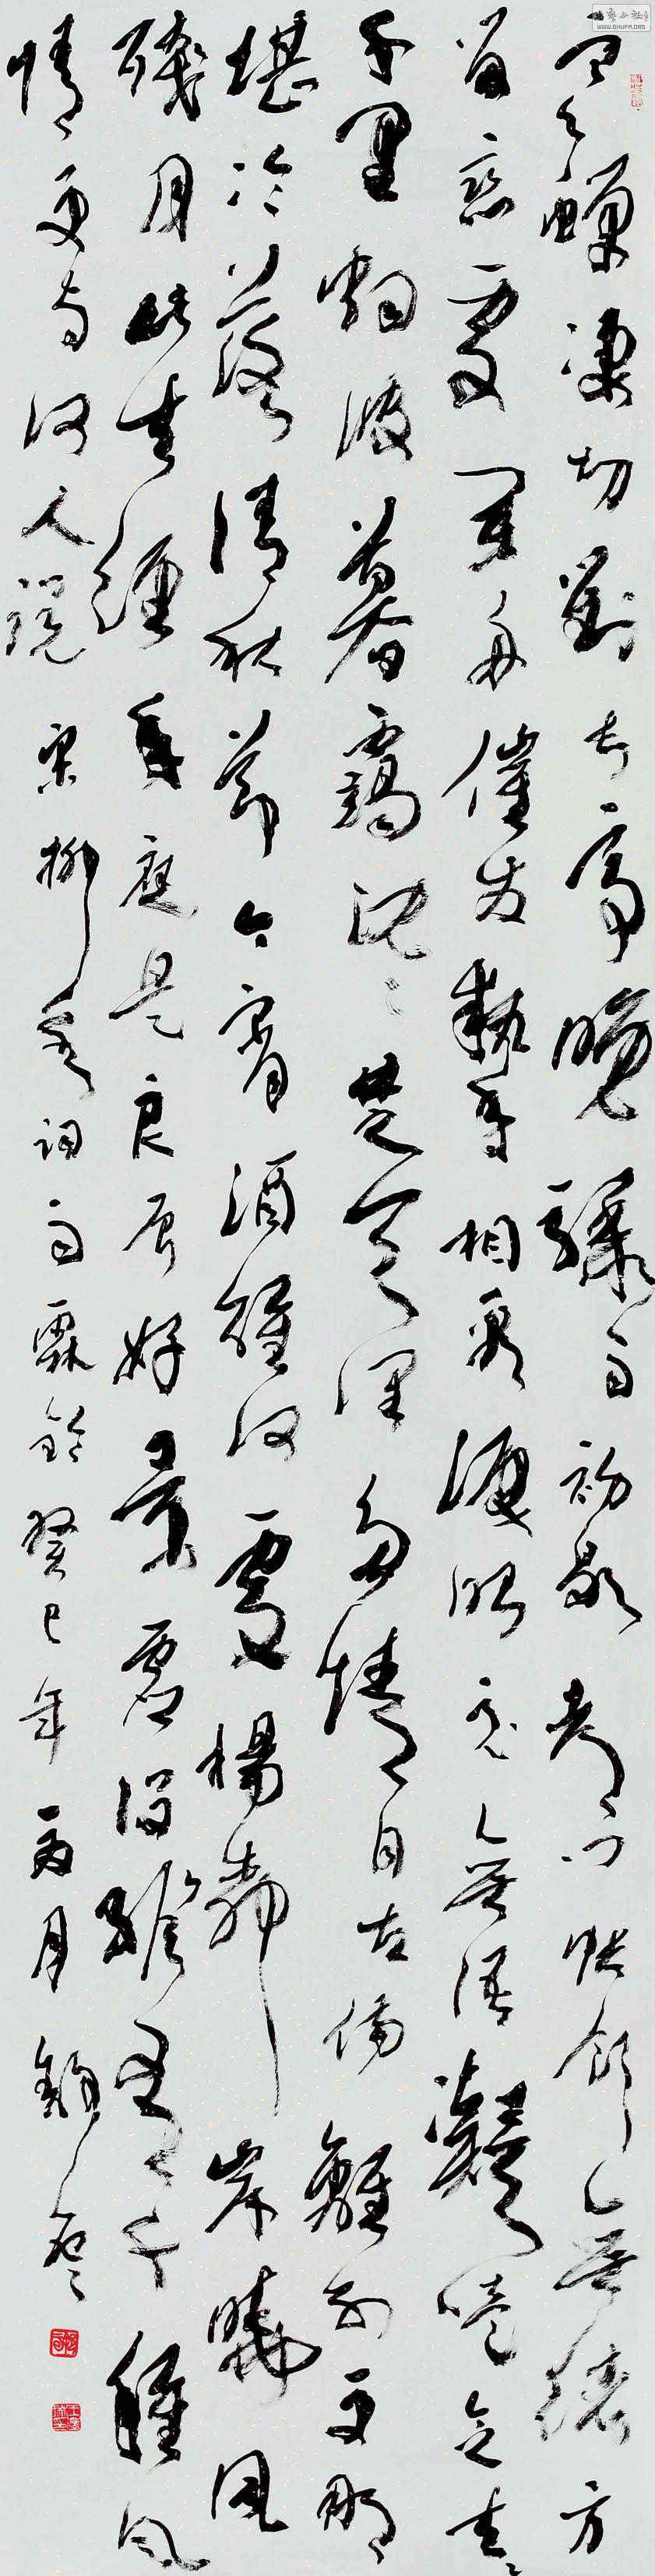 寒蟬淒切對長亭晚驟雨初歇都門帳飲無緒方
留戀處蘭舟催發執手相看淚眼竟無語凝噎念去々
千里烟波暮靄沈々楚天濶多情自古傷離別更那
堪冷落清秋節今宵酒醒何處楊柳岸曉風
殘月此去經年應是良辰好景虛設縱有千種風
情更與何人說 宋柳永詞雨霖鈴癸巳年月
WWW.SHUFA.ORG